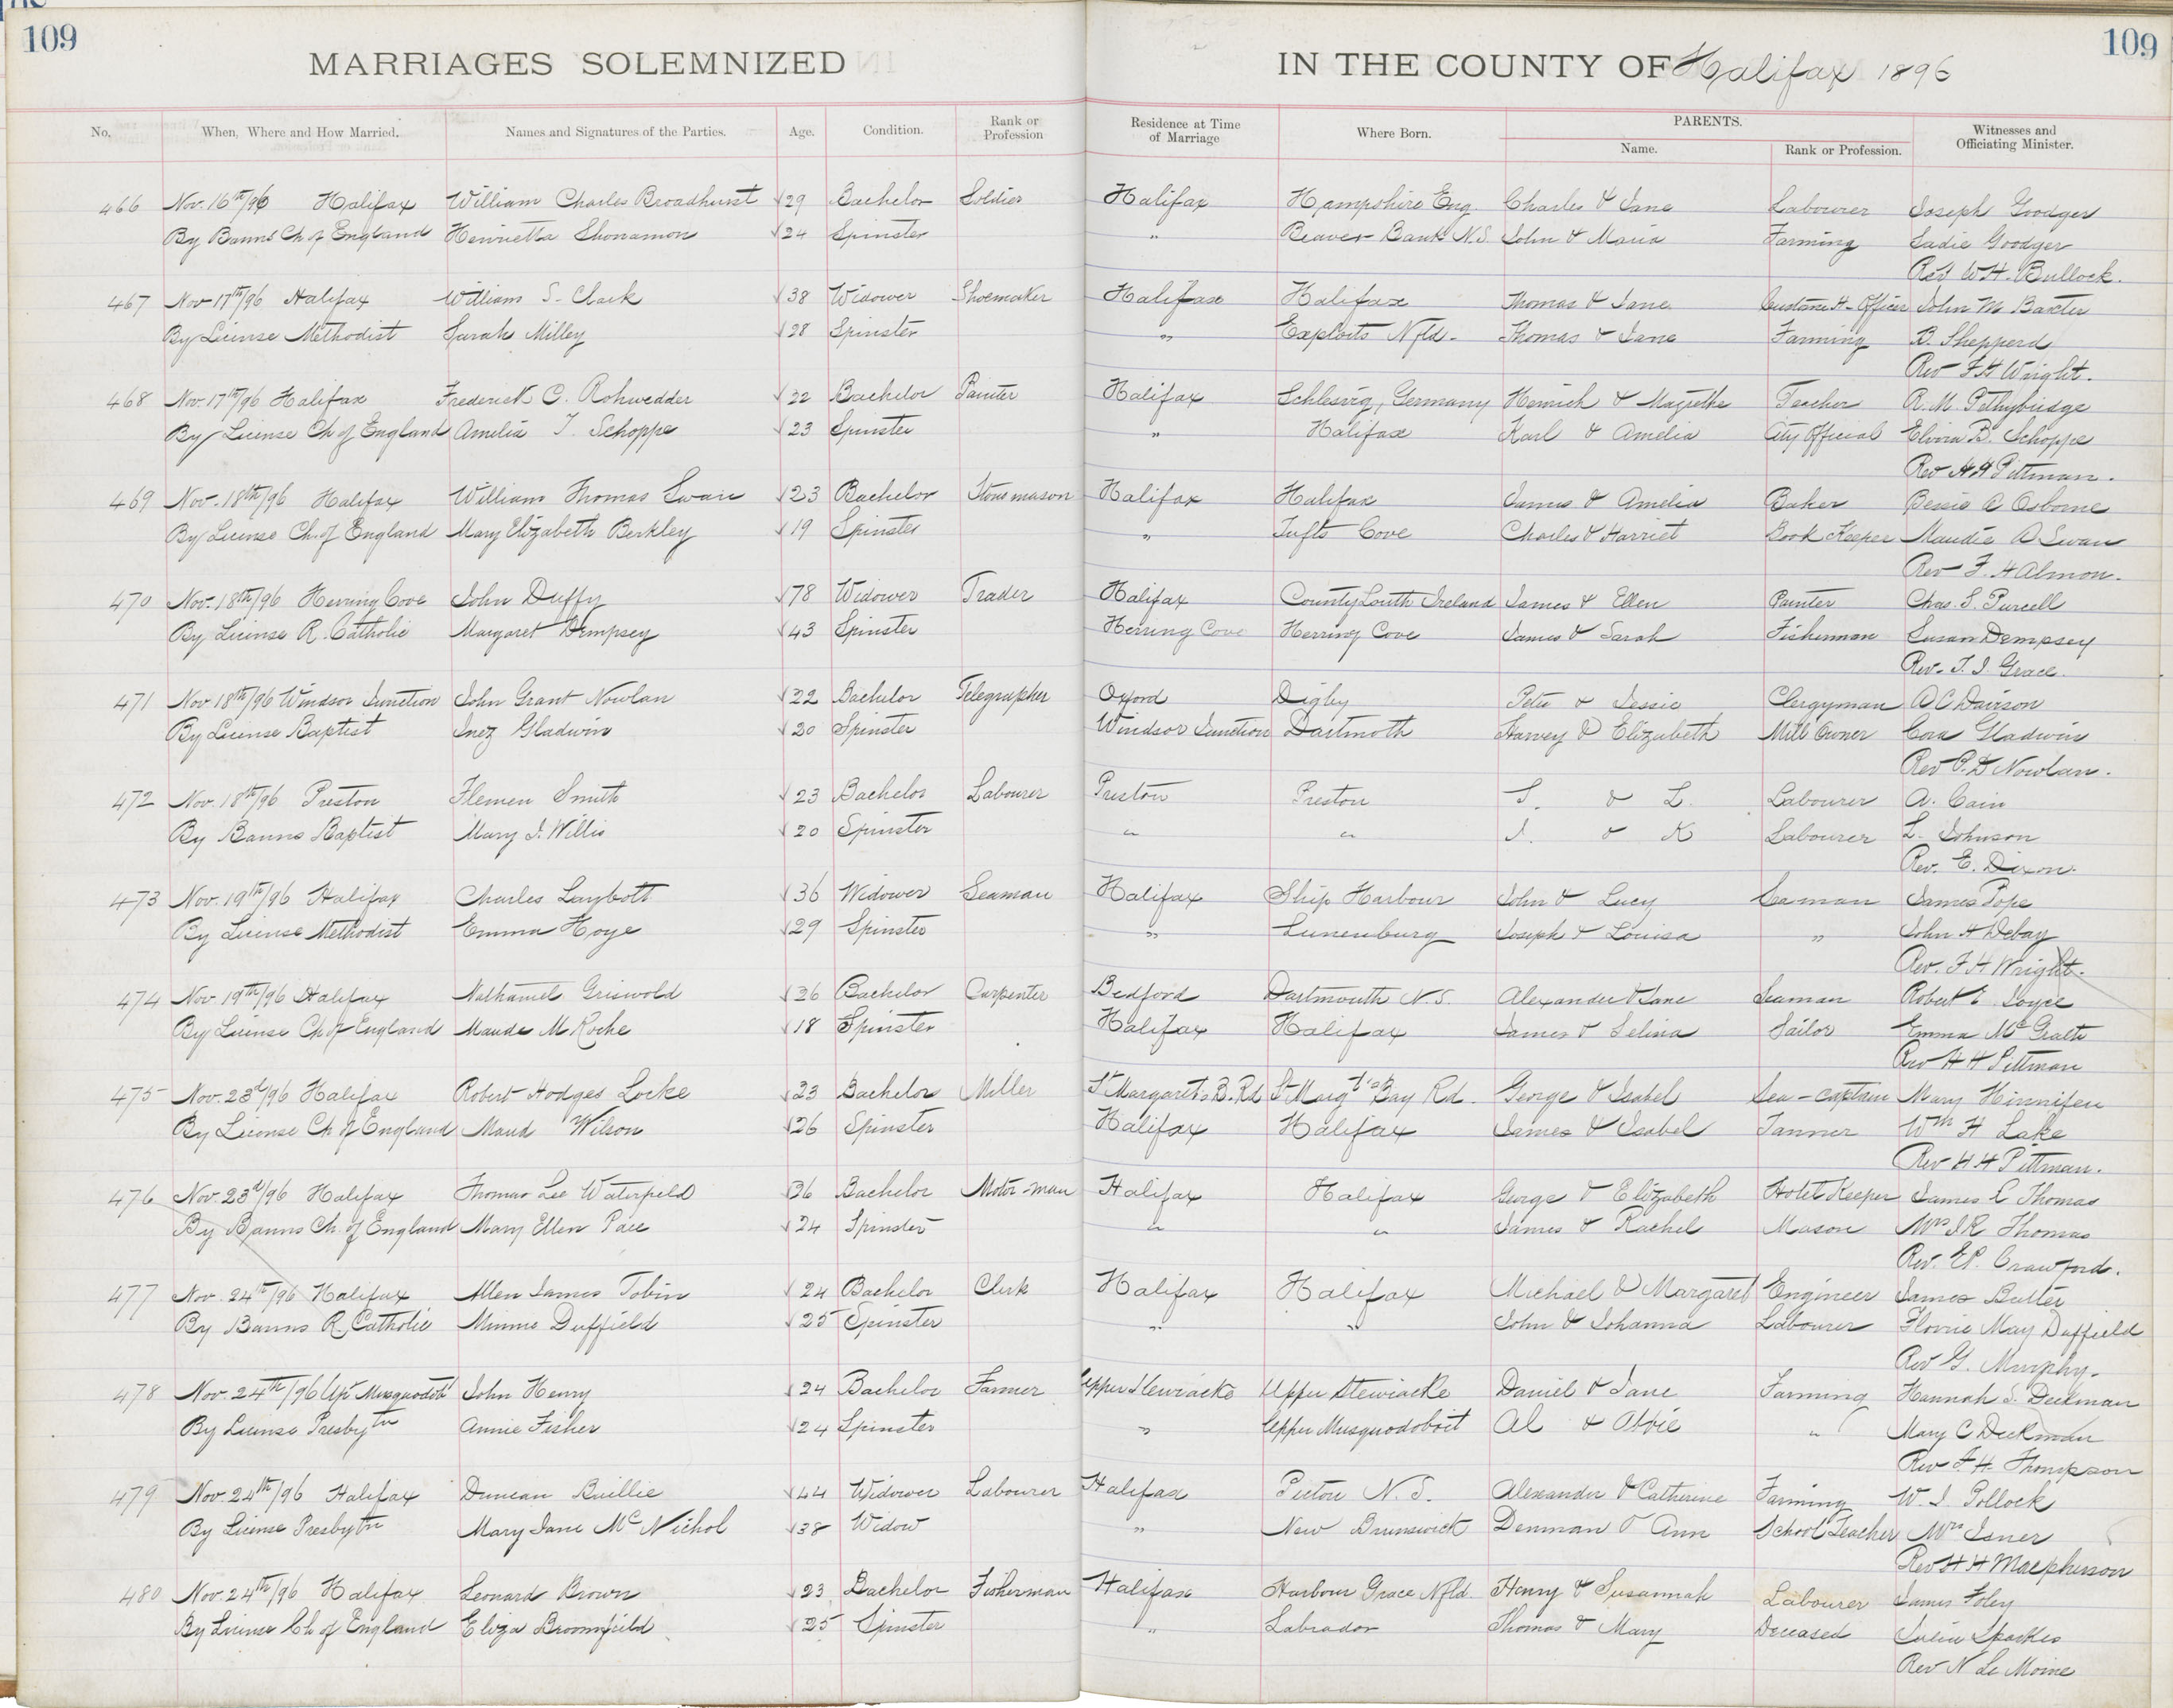 109
109
MARRIAGES SOLEMNIZED IN THE COUNTY OF Halifax 1896
No. When, Where and How Married. Names and Signatures of the Parties. Age. Condition. Rank or Profession Residence at Time of Marriage Where Born. PARENTS. Name. Rank or Profession. Witnesses and Officiating Minister.
466 Nov. 16th/96 Halifax William Charles Broadhurst 29 Bachelor Soldier Halifax Hampshire Eng. Charles & Jane Labourer Joseph Goodger
By Banns Ch of England Henrietta 24 Spinster " Beaver Bank N.S. John & Maria Farming Sadie Goodger
Rev W H. Bullock.
467 Nov 17th/96 Halifax William S. Clark 38 Widower Shoemaker Halifax Halifax Thomas & Jane Customs H-Officer John M Baxter
By License Methodist Sarah Milley 28 Spinster " Exploits Nfld. Thomas & Jane Farming B. Shepperd
Rev F H Wright.
468 Nov. 17th/96 Halifax Frederick C. Rohwedder 32 Bachelor Painter Halifax Schlesvig, Germany Heinrich & Teacher R. M. Pethybridge
By License Ch of England Amelia T. Schoppe 23 Spinster " Halifax Karl & Amelia City Official Elvira B. Schoppe
Rev H H Pittman.
469 Nov. 18th/96 Halifax William Thomas Swan 23 Bachelor Stonemason Halifax Halifax James & Amelia Baker Bessie A Osborne
By License Ch. of England Mary Elizabeth Berkley 19 Spinster " Tufts Cove Charles & Harriet Book Keeper Maudie A Swan
Rev F. H Almon.
470 Nov. 18th/96 Herring Cove John Duffy 78 Widower Trader Halifax County Louth Ireland James & Ellen Painter Chas. S. Purcell
By License R. Catholic Margaret Dempsey 43 Spinster Herring Cove Herring Cove James & Sarah Fisherman Susan Dempsey
Rev. T. J Grace.
471 Nov 18th/96 Windsor Junction John Grant Nowlan 22 Bachelor Telegrapher Oxford Digby Peter & Jessie Clergyman A C Davison
By License Baptist Inez Gladwin 20 Spinster Windsor Junction Dartmoth Harvey & Elizabeth Mill Owner Cora Gladwin
Rev P. D Nowlan.
472 Nov. 18th/96 Preston Flemen Smith 23 Bachelor Labourer Preston Preston S. & L. Labourer A. Cain
By Banns Baptist Mary J. Willis 20 Spinster " " J. & K Labourer L. Johnson
Rev. E. Dixon.
473 Nov. 19th/96 Halifax Charles Laybolt 36 Widower Seaman Halifax Ship Harbour John & Lucy Seaman James Pope
By License Methodist Emma Hoye 29 Spinster " Lunenburg Joseph & Louisa " John H Debay
Rev. F H Wright.
474 Nov 19th/96 Halifax Nathaniel Griswold 26 Bachelor Carpenter Bedford Dartmouth N.S. Alexander & Jane Seaman Robert E. Joyce
By License Ch of England Maude M Roche 18 Spinster Halifax Halifax James & Selina Sailor Emma Mc Grath
Rev H H Pittman
475 Nov. 23d/96 Halifax Robert Hodges Locke 23 Bachelor Miller St Margarets B. Rd St Marg't's Bay Rd. George & Isabel Sea-captain Mary Hinnifen
By License Ch of England Maud Wilson 26 Spinster Halifax Halifax James & Isabel Tanner Wm H Lake
Rev H H Pittman.
476 Nov. 23d/96 Halifax Thomas Lee Waterfield 36 Bachelor Motor-man Halifax Halifax George & Elizabeth Hotel Keeper James R Thomas
By Banns Ch. of England Mary Ellen Pace 24 Spinster " " James & Rachel Mason Mrs J R Thomas
Rev. E P. Crawford.
477 Nov. 24th/96 Halifax Allen James Tobin 24 Bachelor Clerk Halifax Halifax Michael & Margaret Engineer James Butler
By Banns R. Catholic Minnie Duffield 25 Spinster " " John & Johanna Labourer Florrie May Duffield
Rev G. Murphy.
478 Nov. 24th/96 Upr Musquodobt John Henry 24 Bachelor Farmer Upper Stewiacke Upper Stewiacke Daniel & Jane Farming Hannah S. Deckman
By License Presbytn Annie Fisher 24 Spinster " Upper Musquodoboit Al & " Mary C Deckman
Rev F. H. Thompson
479 Nov 24th/96 Halifax Duncan Baillie 44 Widower Labourer Halifax Pictou N.S. Alexander & Catherine Farming W. J. Pollock
By License Presbytn Mary Jane McNichol 38 Widow " New Brunswick Denman & Ann School Teacher Mrs Isner
Rev H H Macpherson
480 Nov. 24th/96 Halifax Leonard Brown 23 Bachelor Fisherman Halifax Harbour Grace Nfld. Henry & Susannah Labourer James Foley
By License Ch of England Eliza Broomfield 25 Spinster " Labrador Thomas & Mary Deceased Julia Sparkes
Rev N Le Moine